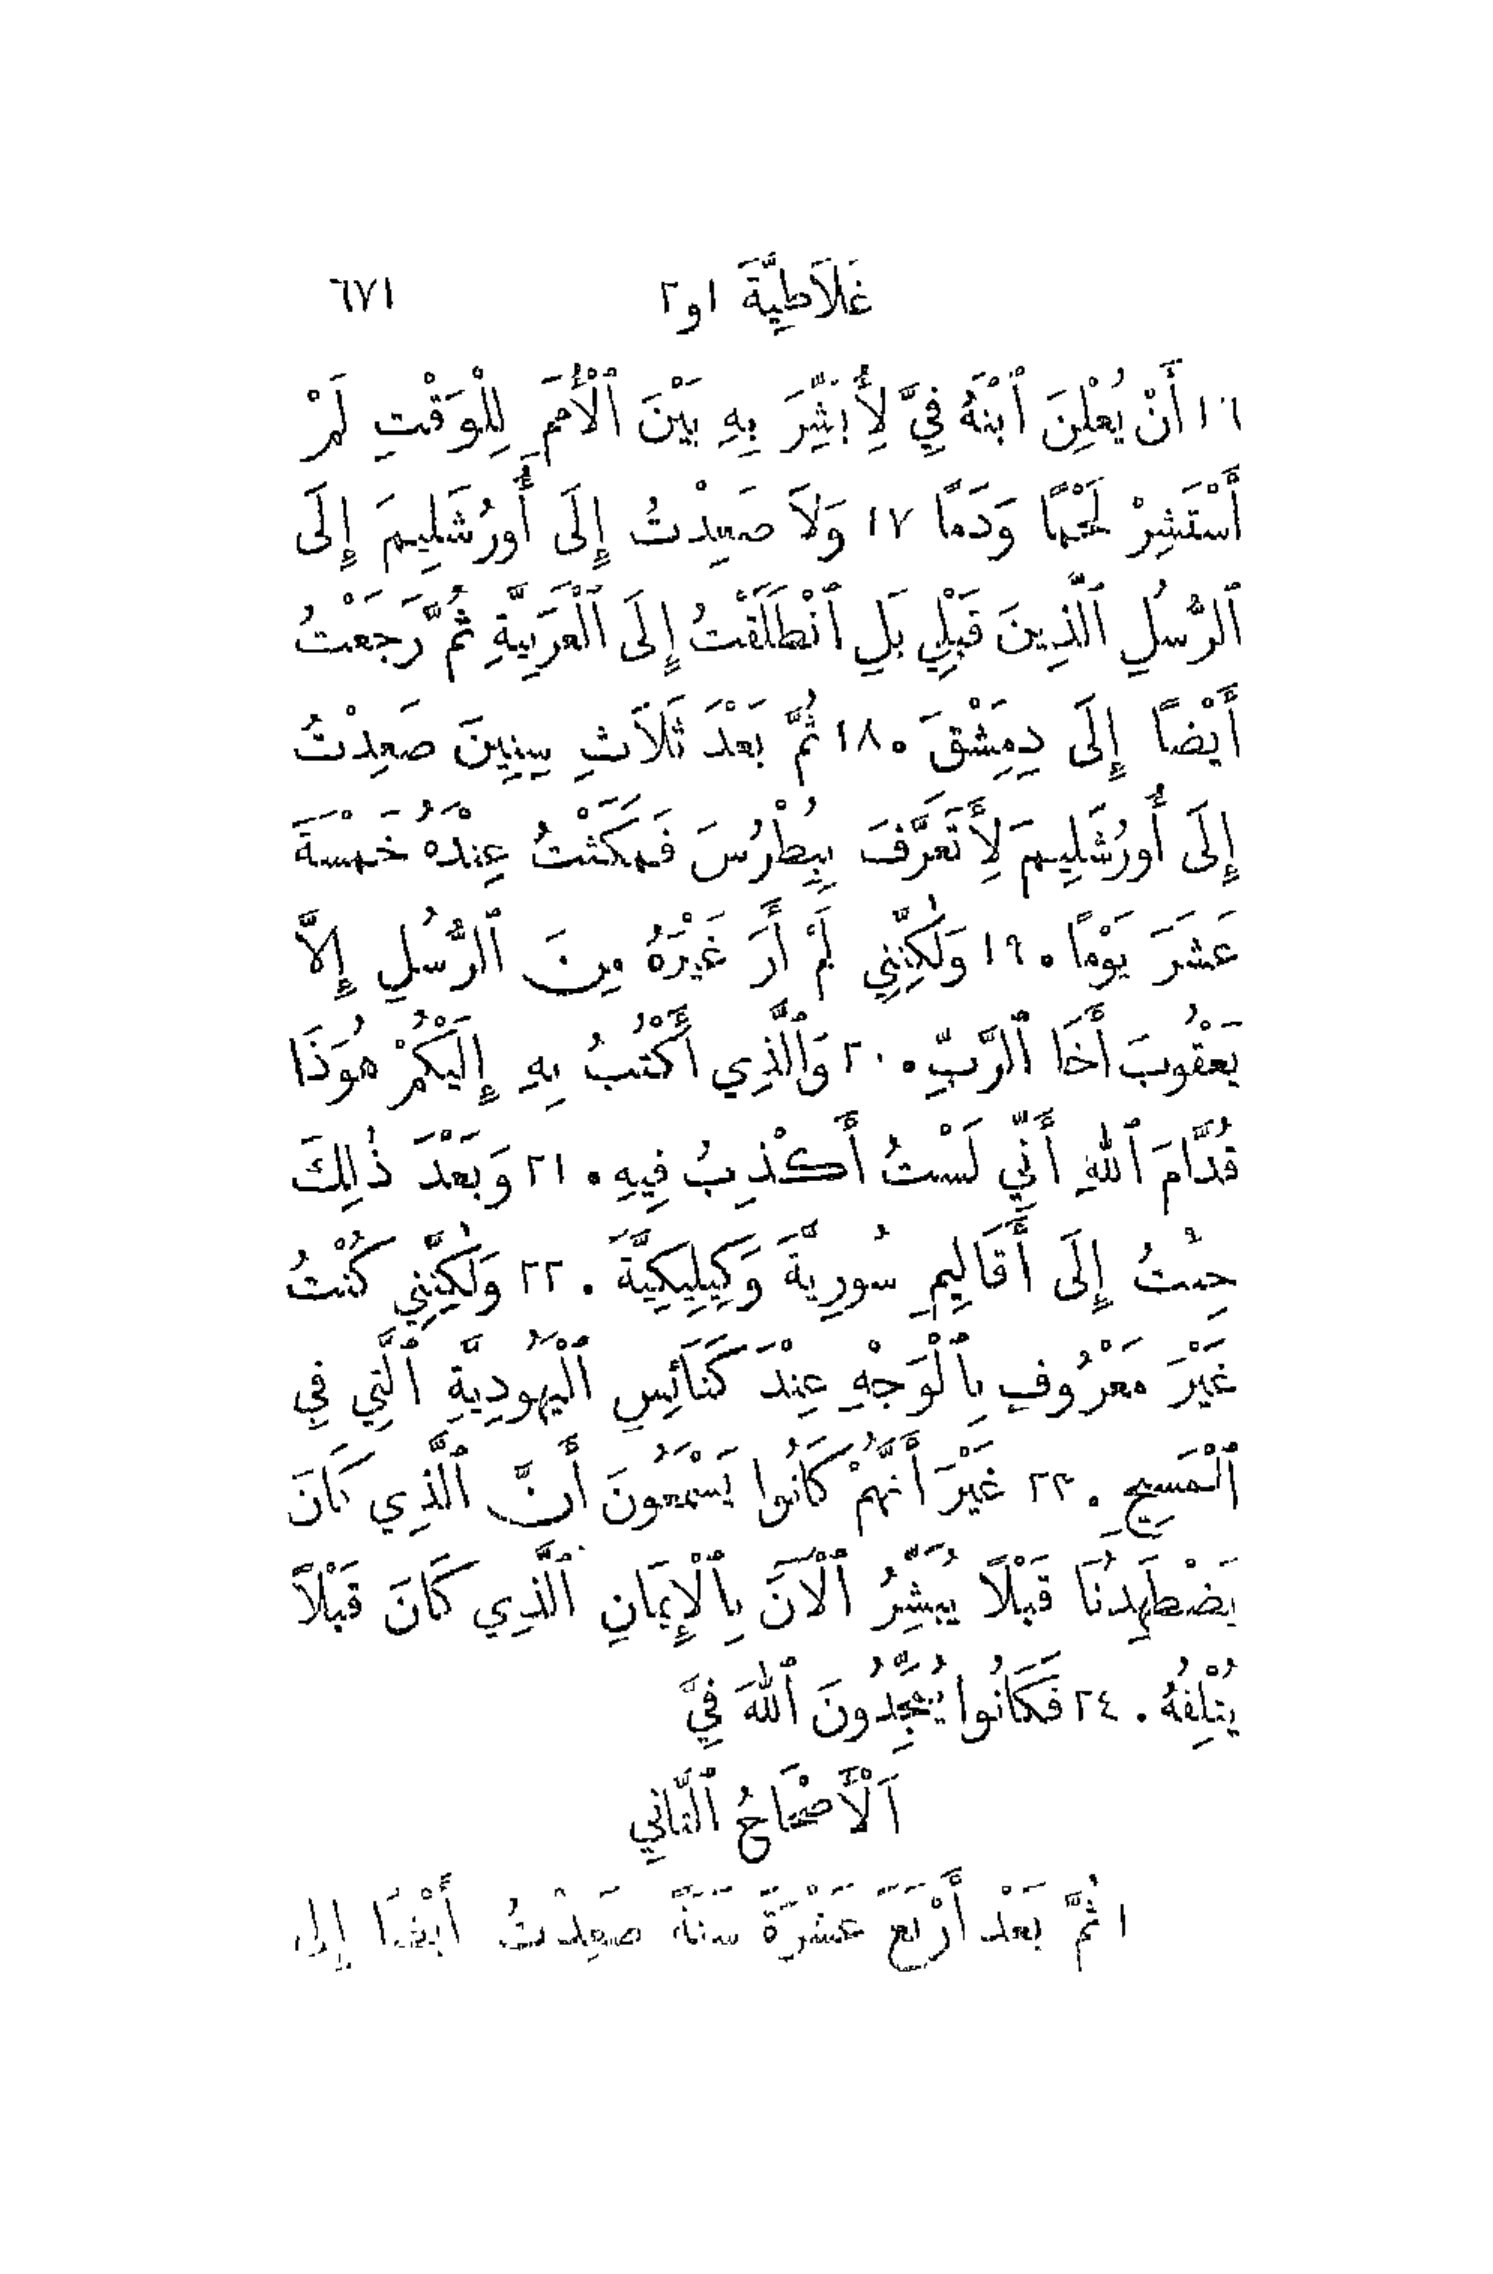 غَلَاطِيَّةَ ١ و٢ ٦٧١
١٦ أَنْ يُعْلِنَ ٱبْنَهُ فِيَّ لِأُبَشِّرَ بِهِ بَيْنَ ٱلْأُمَمِ لِلْوَقْتِ لَمْ
أَسْتَشِرْ لَحْمًا وَدَمًا ١٧ وَلَا صَعِدْتُ إِلَى أُورُشَلِيمَ إِلَى
ٱلرُّسُلِ ٱلَّذِينَ قَبْلِي بَلِ ٱنْطَلَقْتُ إِلَى ٱلْعَرَبِيَّةِ ثُمَّ رَجَعْتُ
أَيْضًا إِلَى دِمِشْقَ. ١٨ ثُمَّ بَعْدَ ثَلَاثِ سِنِينَ صَعِدْتُ
إِلَى أُورُشَلِيمَ لِأَتَعَرَّفَ بِبُطْرُسَ فَمَكَثْتُ عِنْدَهُ خَمْسَةَ
عَشَرَ يَوْمًا. ١٩ وَلٰكِنَّنِي لَمْ أَرَ غَيْرَهُ مِنَ ٱلرُّسُلِ إِلَّا
يَعْقُوبَ أَخَا ٱلرَّبِّ. ٢٠ وَٱلَّذِي أَكْتُبُ بِهِ إِلَيْكُمْ هُوَذَا
قُدَّامَ ٱللهِ أَنِّي لَسْتُ أَكْذِبُ فِيهِ. ٢١ وَبَعْدَ ذٰلِكَ
جِئْتُ إِلَى أَقَالِيمِ سُورِيَّةَ وَكِيلِيكِيَّةَ. ٢٢ وَلٰكِنَّنِي كُنْتُ
غَيْرَ مَعْرُوفٍ بِٱلْوَجْهِ عِنْدَ كَنَائِسِ ٱلْيَهُودِيَّةِ ٱلَّتِي فِي
ٱلْمَسِيحِ. ٢٣ غَيْرَ أَنَّهُمْ كَانُوا يَسْمَعُونَ أَنَّ ٱلَّذِي كَانَ
يَضْطَهِدُنَا قَبْلًا يُبَشِّرُ ٱلْآنَ بِٱلْإِيمَانِ ٱلَّذِي كَانَ قَبْلًا
يُتْلِفُهُ. ٢٤ فَكَانُوا يُمَجِّدُونَ ٱللهَ فِيَّ
اَلْأَصْحَاحُ ٱلثَّانِي
١ ثُمَّ بَعْدَ أَرْبَعَ عَشْرَةَ سَنَةً صَعِدْتُ أَيْضًا إِلَى